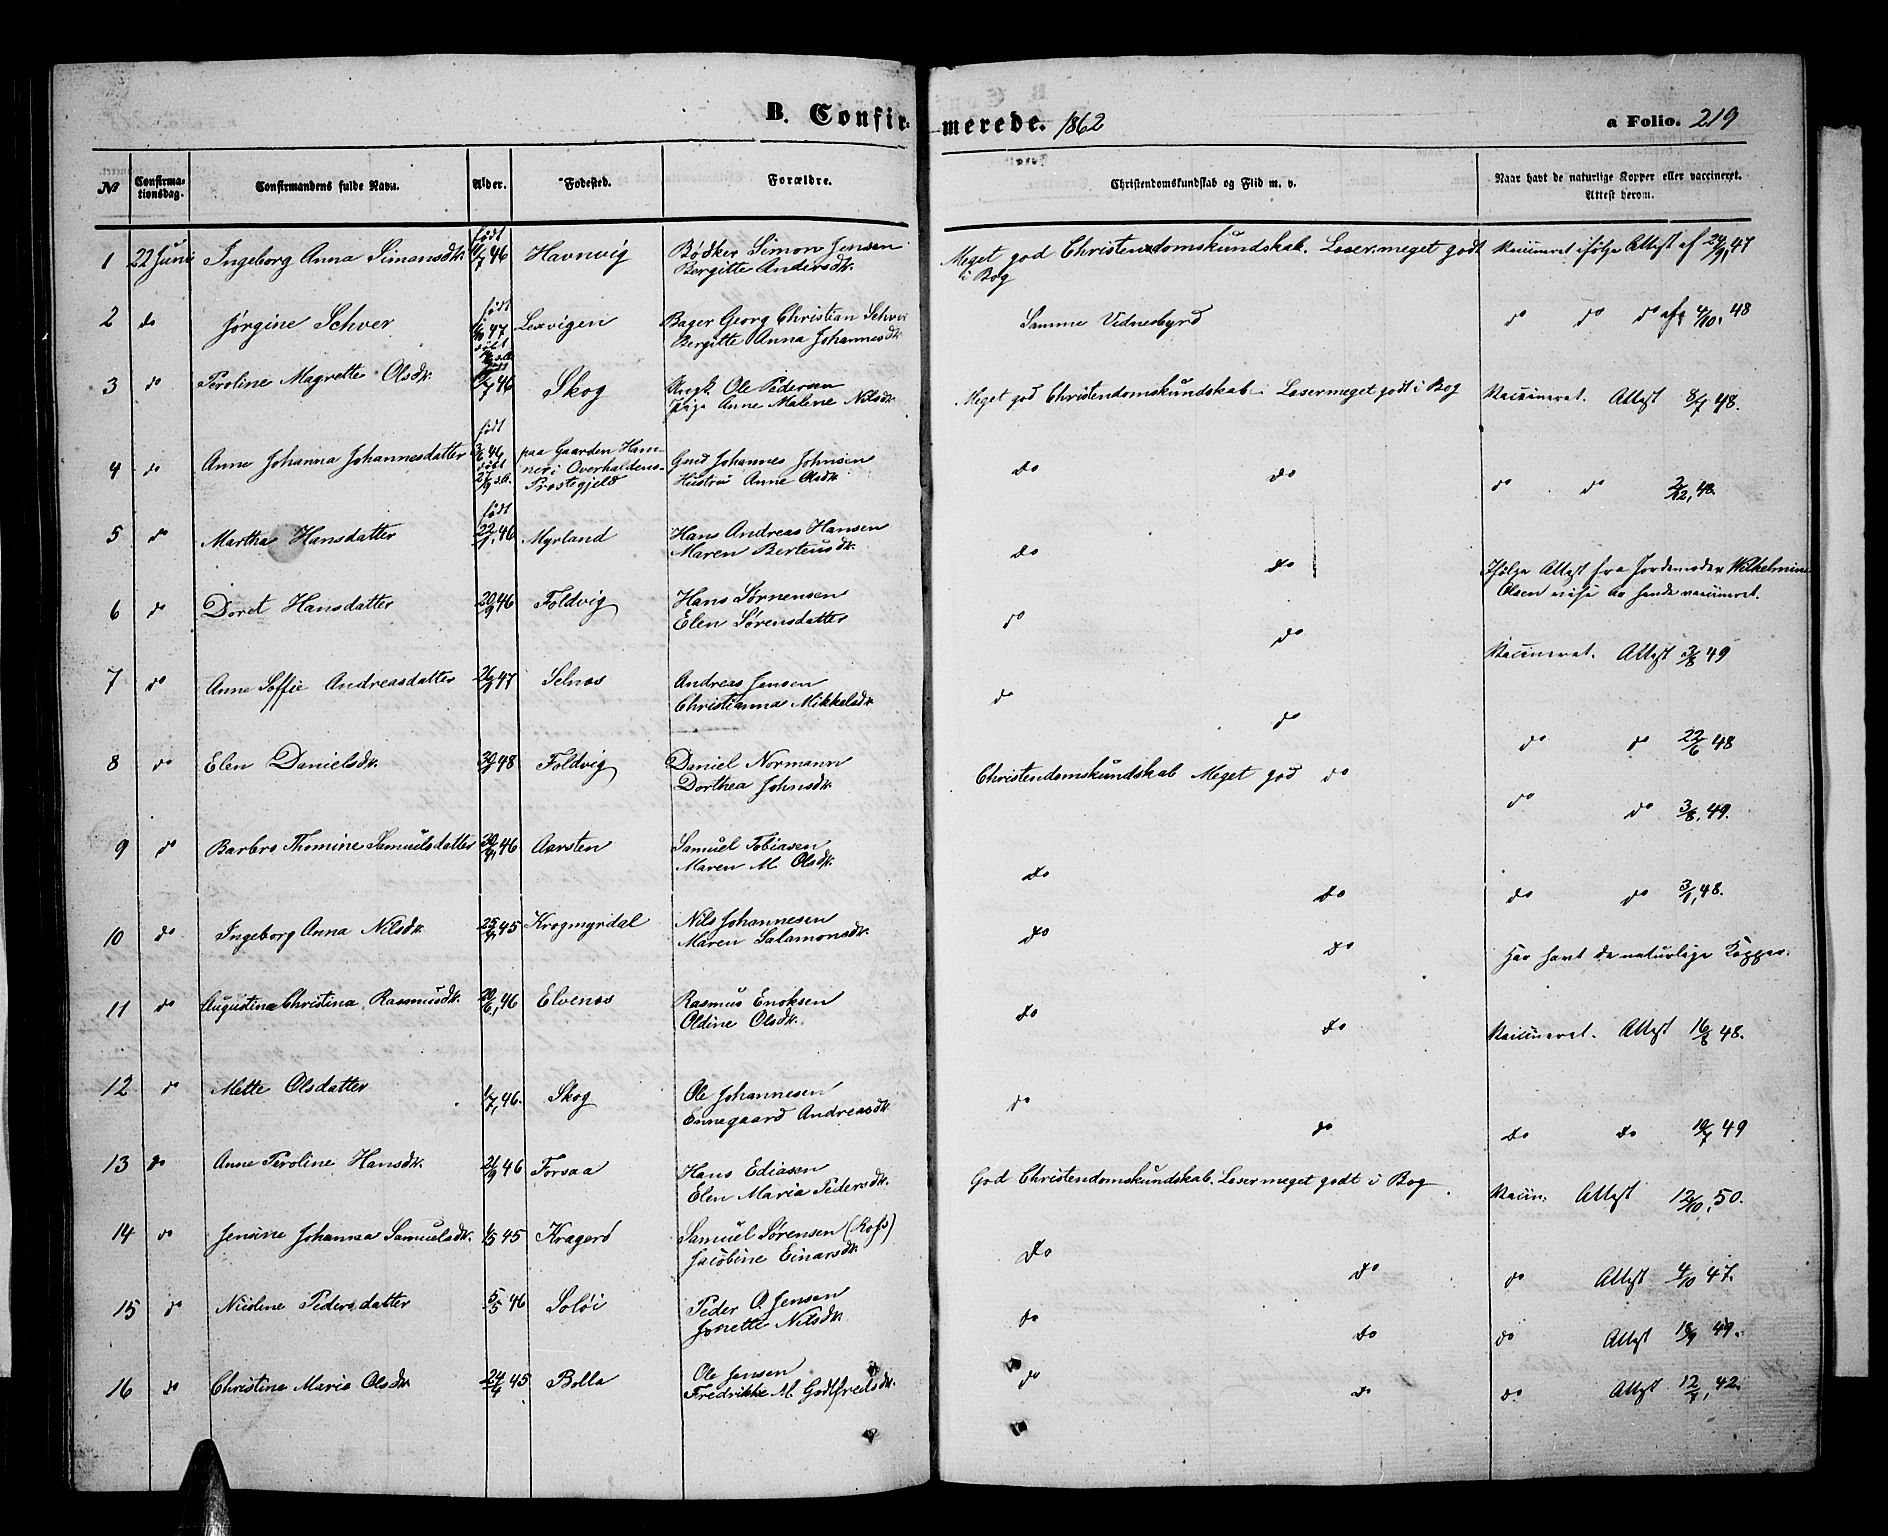 B. Confirmerede. 1862
a Folio. 219
No Confirmationsdag. Confirmandens fulde Navn. Alder. Fødested. Forældre. Christendomskundskab og Flid m. v. Naar havt de naturlige Kopper eller vaccineret. Attest herom.
1 22 Juni Ingeborg Anna Simonsdtr. født 46 Havnvig Bødker Simon Jensen Meget god Christendomskundskab. Læser meget godt Vaccineret ifølge Attest af 24/9, 47
Bergitte Andersdtr. i Bog
2 do Jørgine Schver født 47 Lexvigen Bager Georg Christian Schver Samme Vidnesbyrd do do do af 4/10, 48
døbt Bergitte Anna Johannesdtr.
3 do Peroline Magrette Olsdtr. 46 Skog Ungk. Ole Pedersen Meget god Christendomskundskab. Læser meget godt i Bog Vaccineret. Attest 8/7 48.
Pige Anne Malene Nilsdtr.
4 do Anne Johanna Johannesdatter født 3/6 46 paa Gaarden Ham- Gmd Johannes Johnsen do do do do 2/12, 48.
døbt ner i Overhaldens Hustru Anne Olsdtr.
27/9 s.A. Præstegjeld
5 do Martha Hansdatter født 22/1, 46 Myrland Hans Andreas Hansen do do Ifølge Attest fra Jordemoder Wilhelmine
Maren Berteusdtr. Olsen vise at hende vaccineret.
6 do Doret Hansdatter 20/9 46 Foldvig Hans Sørnensen do do Vaccineret. Attest 3/8 49
Elen Sørensdatter
7 do Anne Soffie Andreasdatter 47 Selnæs Andreas Jensen do do do do 22/6 48
Christianna Mikkelsdtr.
8 do Elen Danielsdtr. 48 Foldvig Daniel Normann Christendomskundskab Meget god do do do 3/8, 49.
Dorthea Johnsdtr.
9 do Barbro Thomine Samuelsdatter 46 Aarsten Samuel Tobiasen do do do do 3/1, 48.
Maren M. Olsdtr.
10 do Ingeborg Anna Nilsdtr. 45 Krogmyrdal Nils Johannesen do do Har havt de naturlige Kopper.
Maren Salamonsdtr.
11 do Augustina Christina Rasmusdtr. 20/6, 46 Elvenæs Rasmus Enoksen do do Vaccineret. Attest 16/8 48.
Oldine Olsdtr.
12 do Mette Olsdatter 1/7, 46. Skog Ole Johannesen do do do do 10/7 49
Ennegaard Andreasdtr.
13 do Anne Peroline Hansdtr. 21/9 46 Forsaa Hans Ediasen God Christendomskundskab. Læser meget godt i Bog Vaccin. Attest 12/10, 50.
Elen Maria Pedersdtr.
14 do Jensine Johanna Samuelsdtr. 1/5 45 Kragerø Samuel Sørensen (Rofs) do do do Attest 4/10 47.
Jacobine Einarsdtr.
15 do Nicoline Pedersdatter 5/5 46 Soløi Peder O. Jensen do do do Attest 18/9 49.
Jonette Nilsdtr.
16 do Christine Maria Olsdtr. 24/4 45 Bolla Ole Jensen do do do Attest 12/7, 42.
Fredrikke M. Godtfredsdtr.